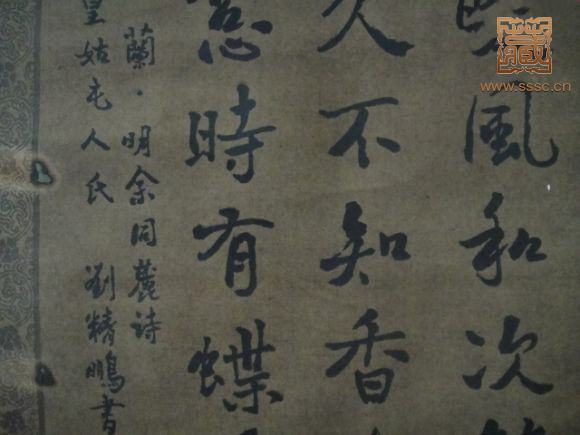 風和次
久不知香
時有蝶
蘭·明余同麓诗
皇姑屯人氏 劉精鵬書
藏
www.sssc.cn